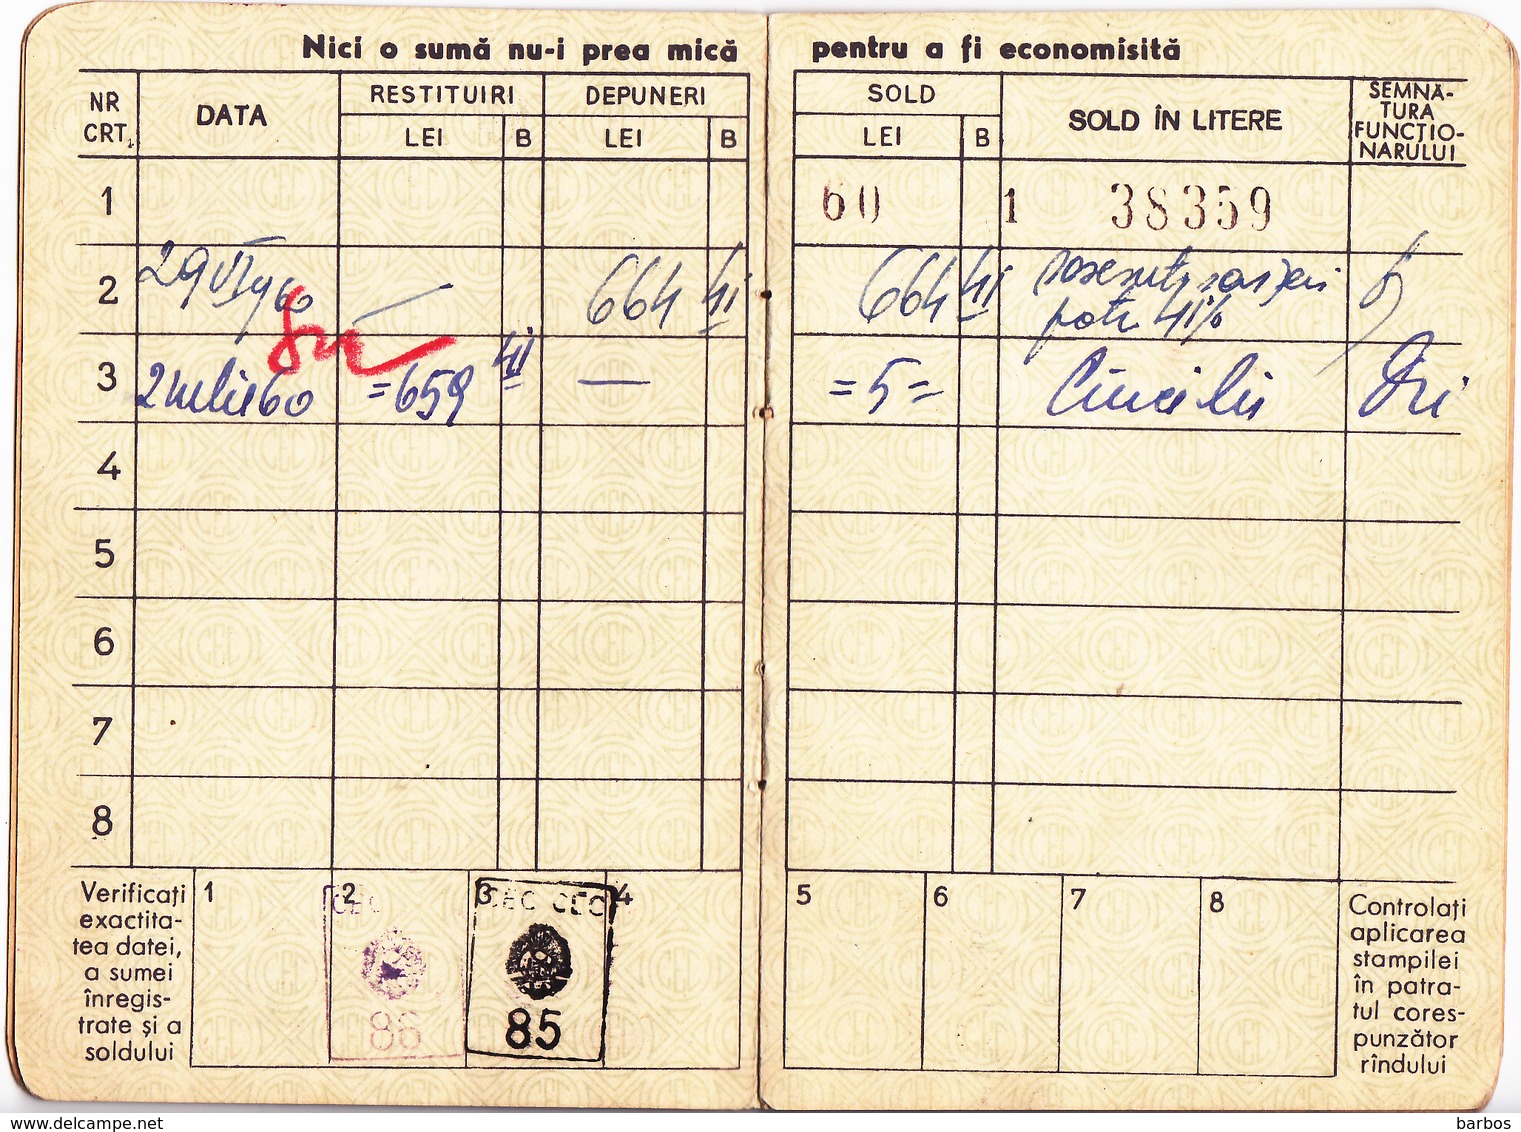 Nici o sumă nu-i prea mică pentru a fi economisită
NR CRT. DATA RESTITUIRI DEPUNERI SOLD SOLD ÎN LITERE SEMNĂ-
TURA
FUNCȚIO-
NARULUI
LEI B LEI B LEI B
1 60 1 38359
2 29 VI 960 — 664 41 664 41
41%
3 2 iulie 60 =659 41 — =5= Cinci lei
4
5
6
7
8
Verificați
exactita-
tea datei,
a sumei
înregis-
trate și a
soldului
1 2 3 4 5 6 7 8
CEC
86
CEC CEC
85
Controlați
aplicarea
stampilei
în patra-
tul cores-
punzător
rîndului
www.delcampe.net
barbos